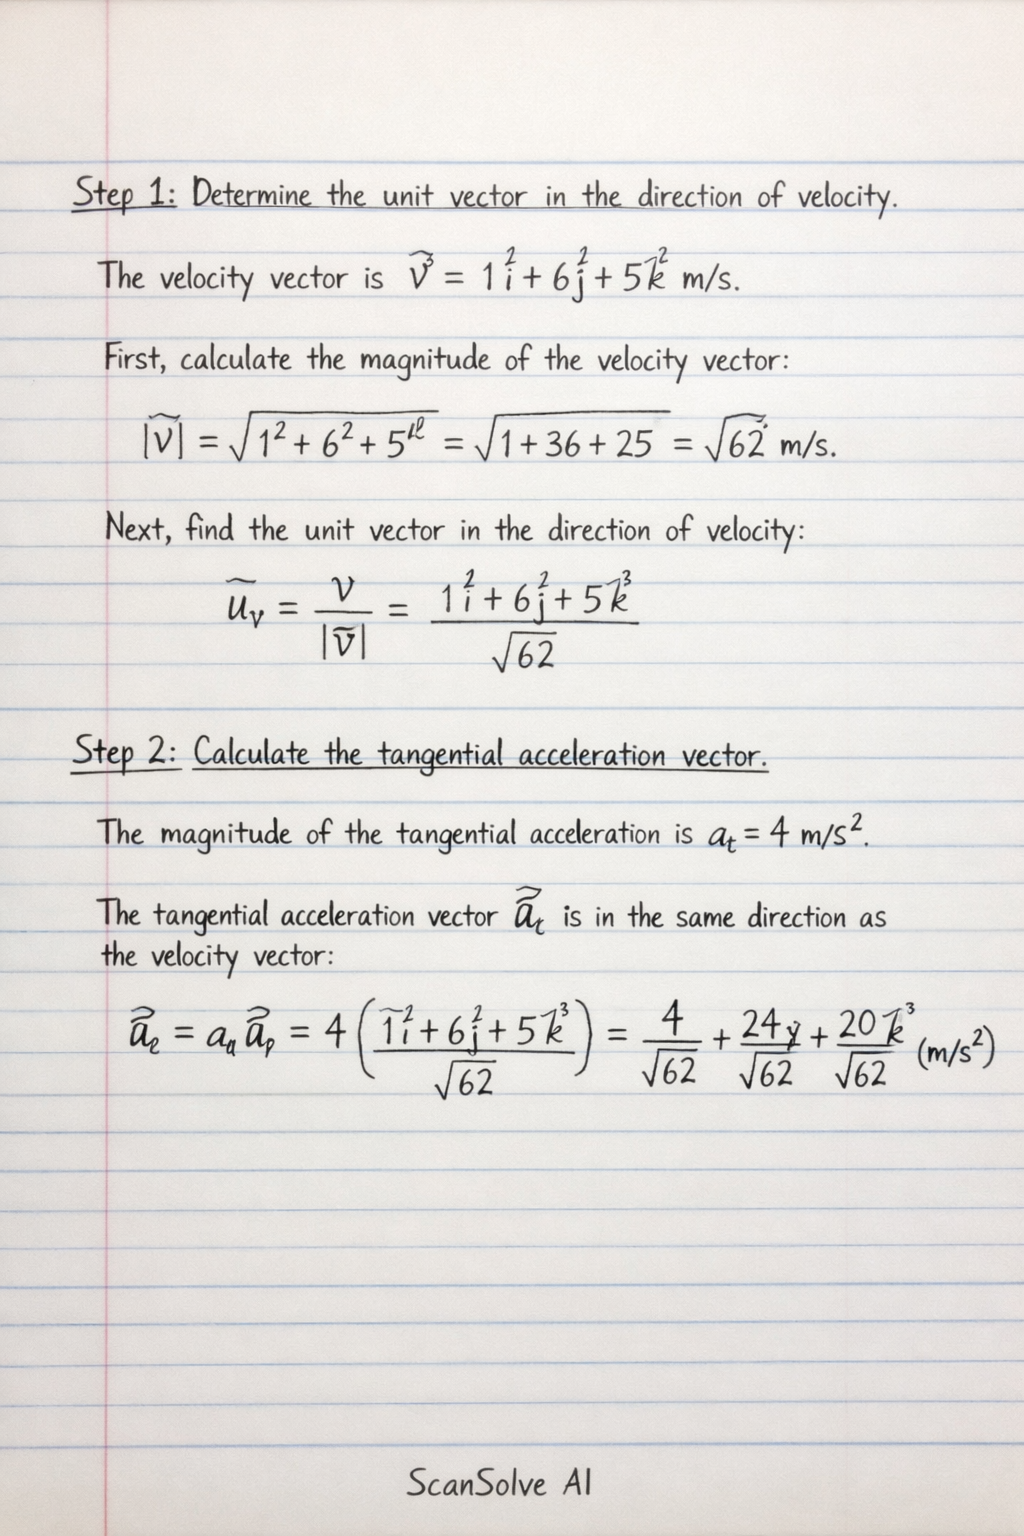 Step 1: Determine the unit vector in the direction of velocity.
The velocity vector is v³ = 1i² + 6j² + 5k² m/s.
First, calculate the magnitude of the velocity vector:
|ṽ| = √(1² + 6² + 5) = √(1 + 36 + 25) = √62 m/s.
Next, find the unit vector in the direction of velocity:
ũᵥ = v/|v̄| = (1i² + 6j² + 5k³)/√62
Step 2: Calculate the tangential acceleration vector.
The magnitude of the tangential acceleration is aₜ = 4 m/s².
The tangential acceleration vector ãₜ is in the same direction as
the velocity vector:
ãₑ = a ãₚ = 4 ((1i² + 6j² + 5k³)/√62) = 4/√62 + 24y/√62 + 20k³/√62 (m/s²)
ScanSolve AI